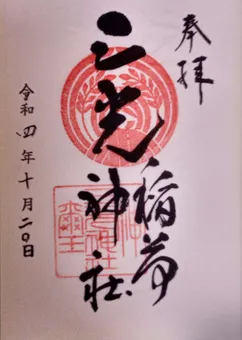 奉拝
三光稲荷
神社
令和四年十月二〇日